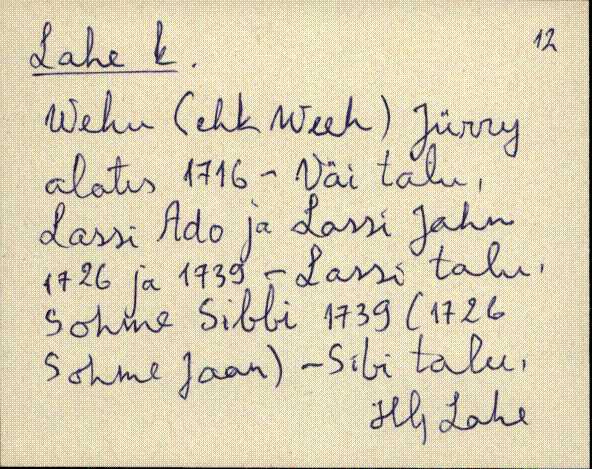 Lahe k. 12
Wehu (ehk Weeh) Jürry
alates 1716 - Väi talu,
Lassi Ado ja Lassi Jahn
1726 ja 1739 - Lassi talu.
Sohme Sibbi 1739 (1726
Sohme Jaan) - Sibi talu.
Hlj Lahe